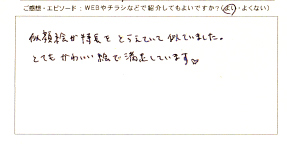 ご感想・エピソード：WEBやチラシなどで紹介してもよいですか？（よい・よくない）
似顔絵が特長をとらえていて似ていました。
とてもかわいい絵で満足しています♡